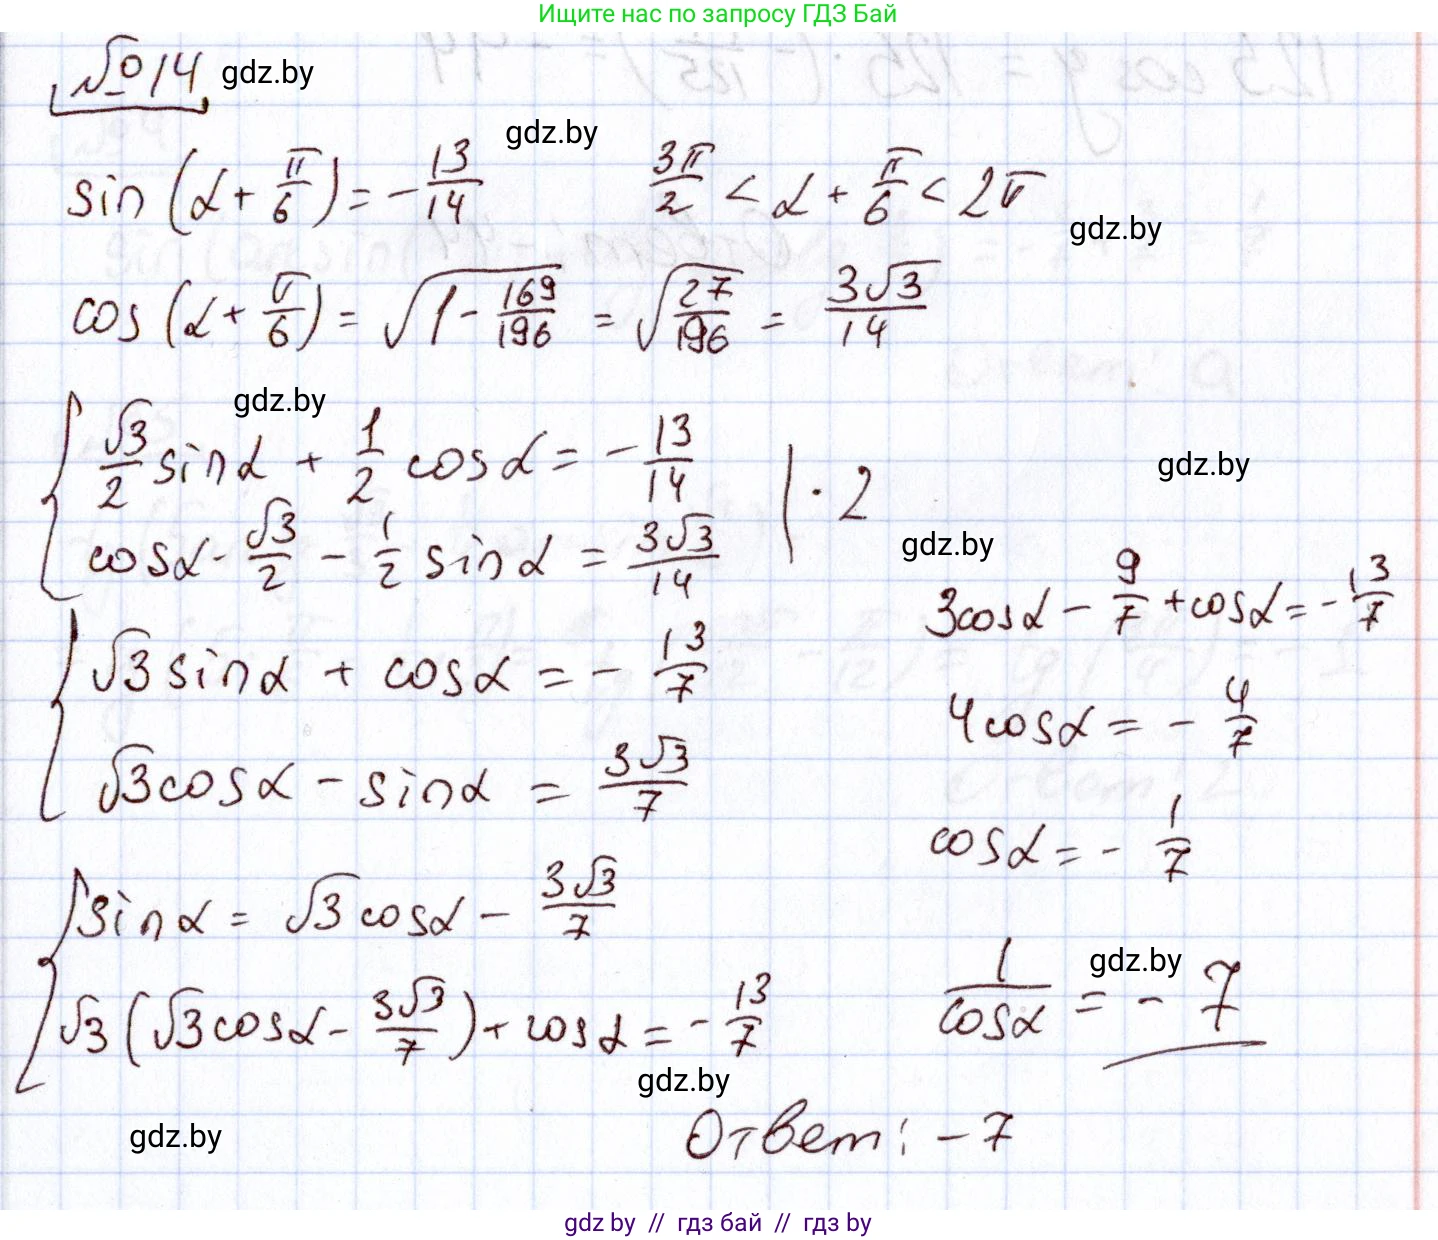 Ищите нас по запросу ГДЗ Бай
№14 gdz.by
gdz.by
sin(α + π/6) = -13/14   3π/2 < α + π/6 < 2π
gdz.by
cos(α + π/6) = √(1 - 169/196) = √(27/196) = 3√3/14
gdz.by
{ √3/2 sinα + 1/2 cosα = -13/14
cosα · √3/2 - 1/2 sinα = 3√3/14 | · 2
gdz.by
gdz.by
{ √3 sinα + cosα = -13/7
√3 cosα - sinα = 3√3/7
{ sinα = √3 cosα - 3√3/7
√3(√3 cosα - 3√3/7) + cosα = -13/7
3cosα - 9/7 + cosα = -13/7
4cosα = -4/7
cosα = -1/7
gdz.by
1/cosα = -7
gdz.by
gdz.by
Ответ: -7
gdz by // гдз бай // гдз by